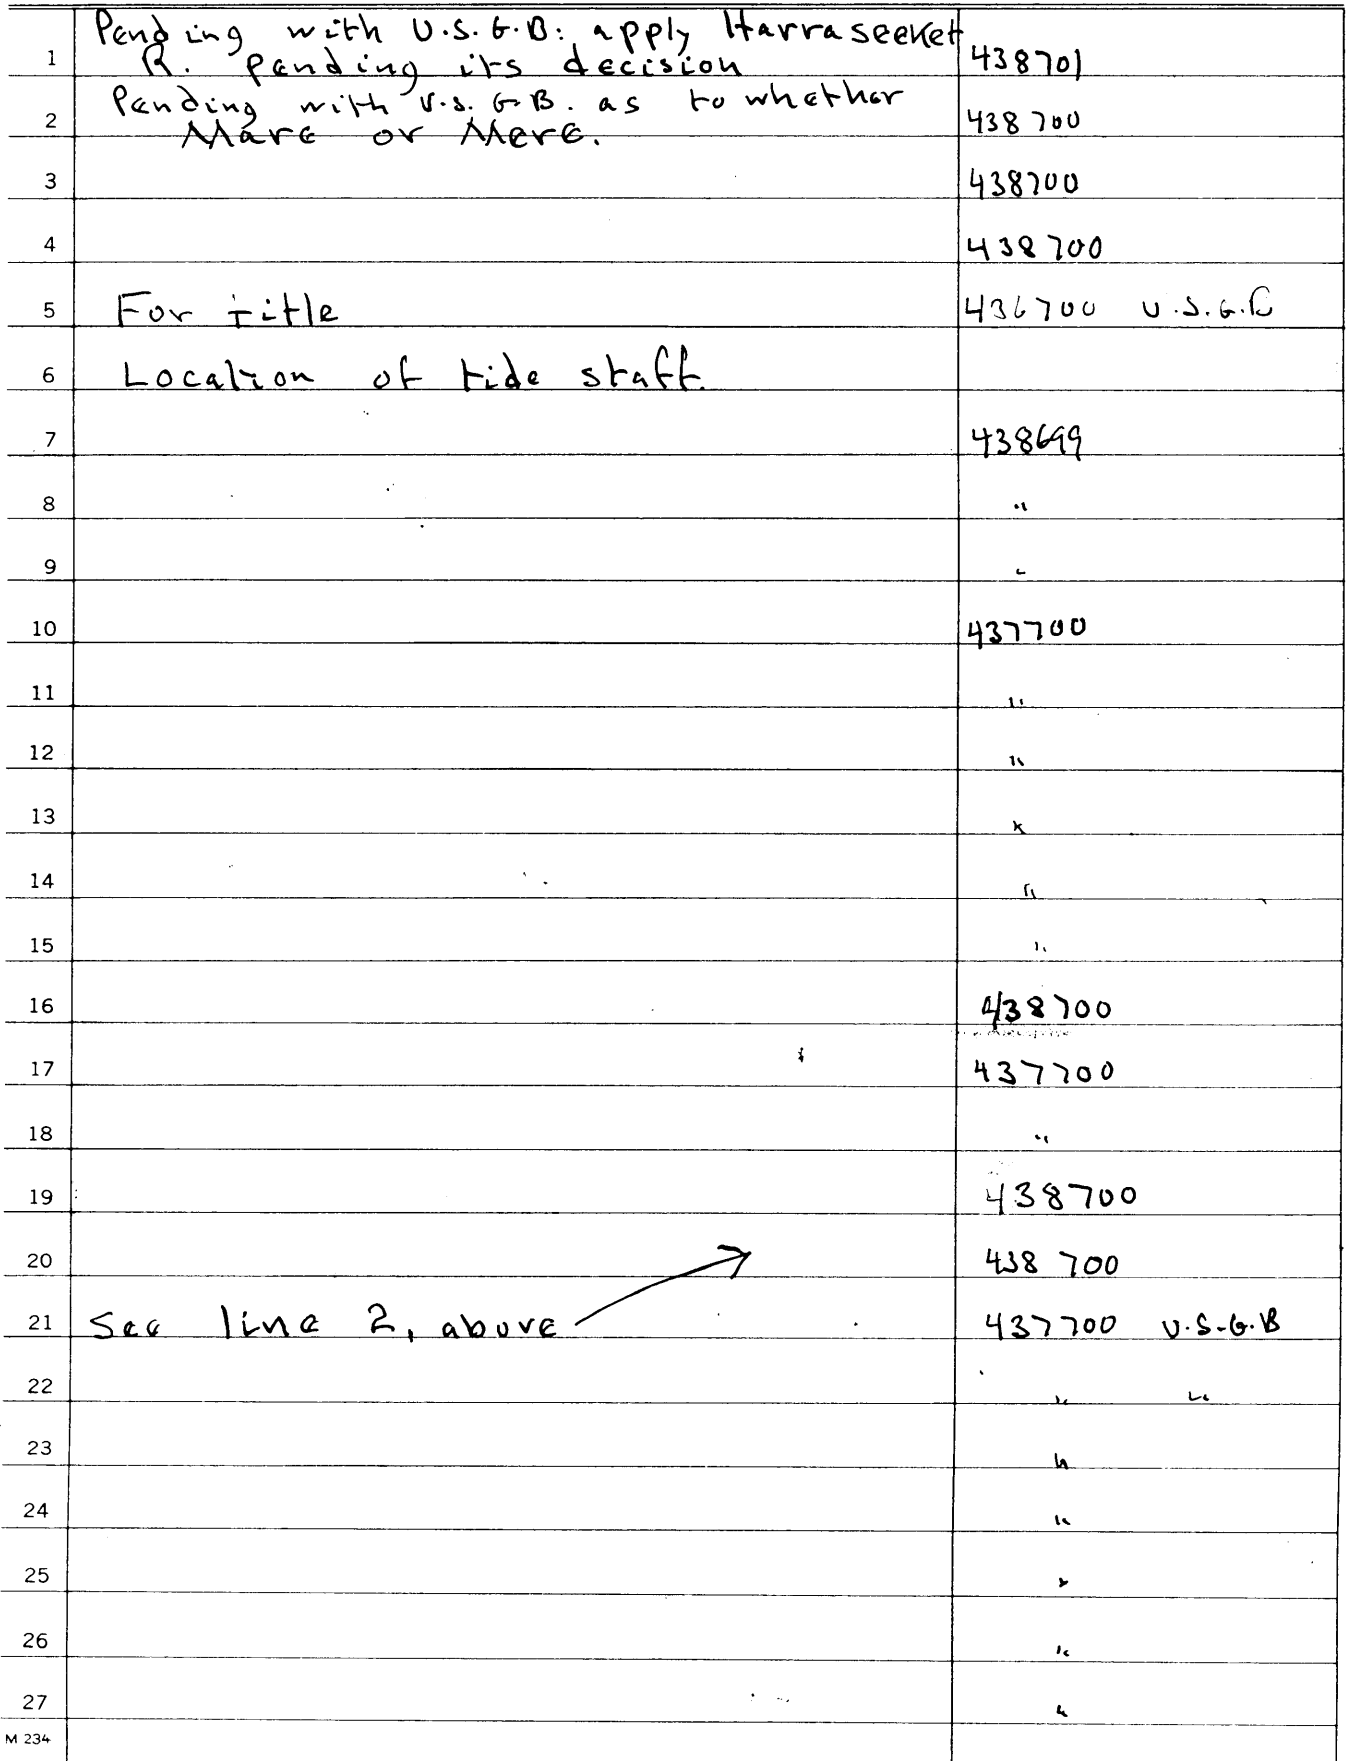 Pending with U.S.G.B: apply Harraseeket
1 R. pending its decision 438701
Pending with U.S.G.B. as to whether
2 Mare or Mere. 438700
3 438700
4 438700
5 For Title 436700 U.S.G.B
6 Location of tide staff.
7 438699
8 "
9 "
10 437700
11 "
12 "
13 "
14 "
15 "
16 438700
17 437700
18 "
19 438700
20 438 700
21 See line 2, above 437700 U.S.G.B
22 " "
23 "
24 "
25 "
26 "
27 "
M 234